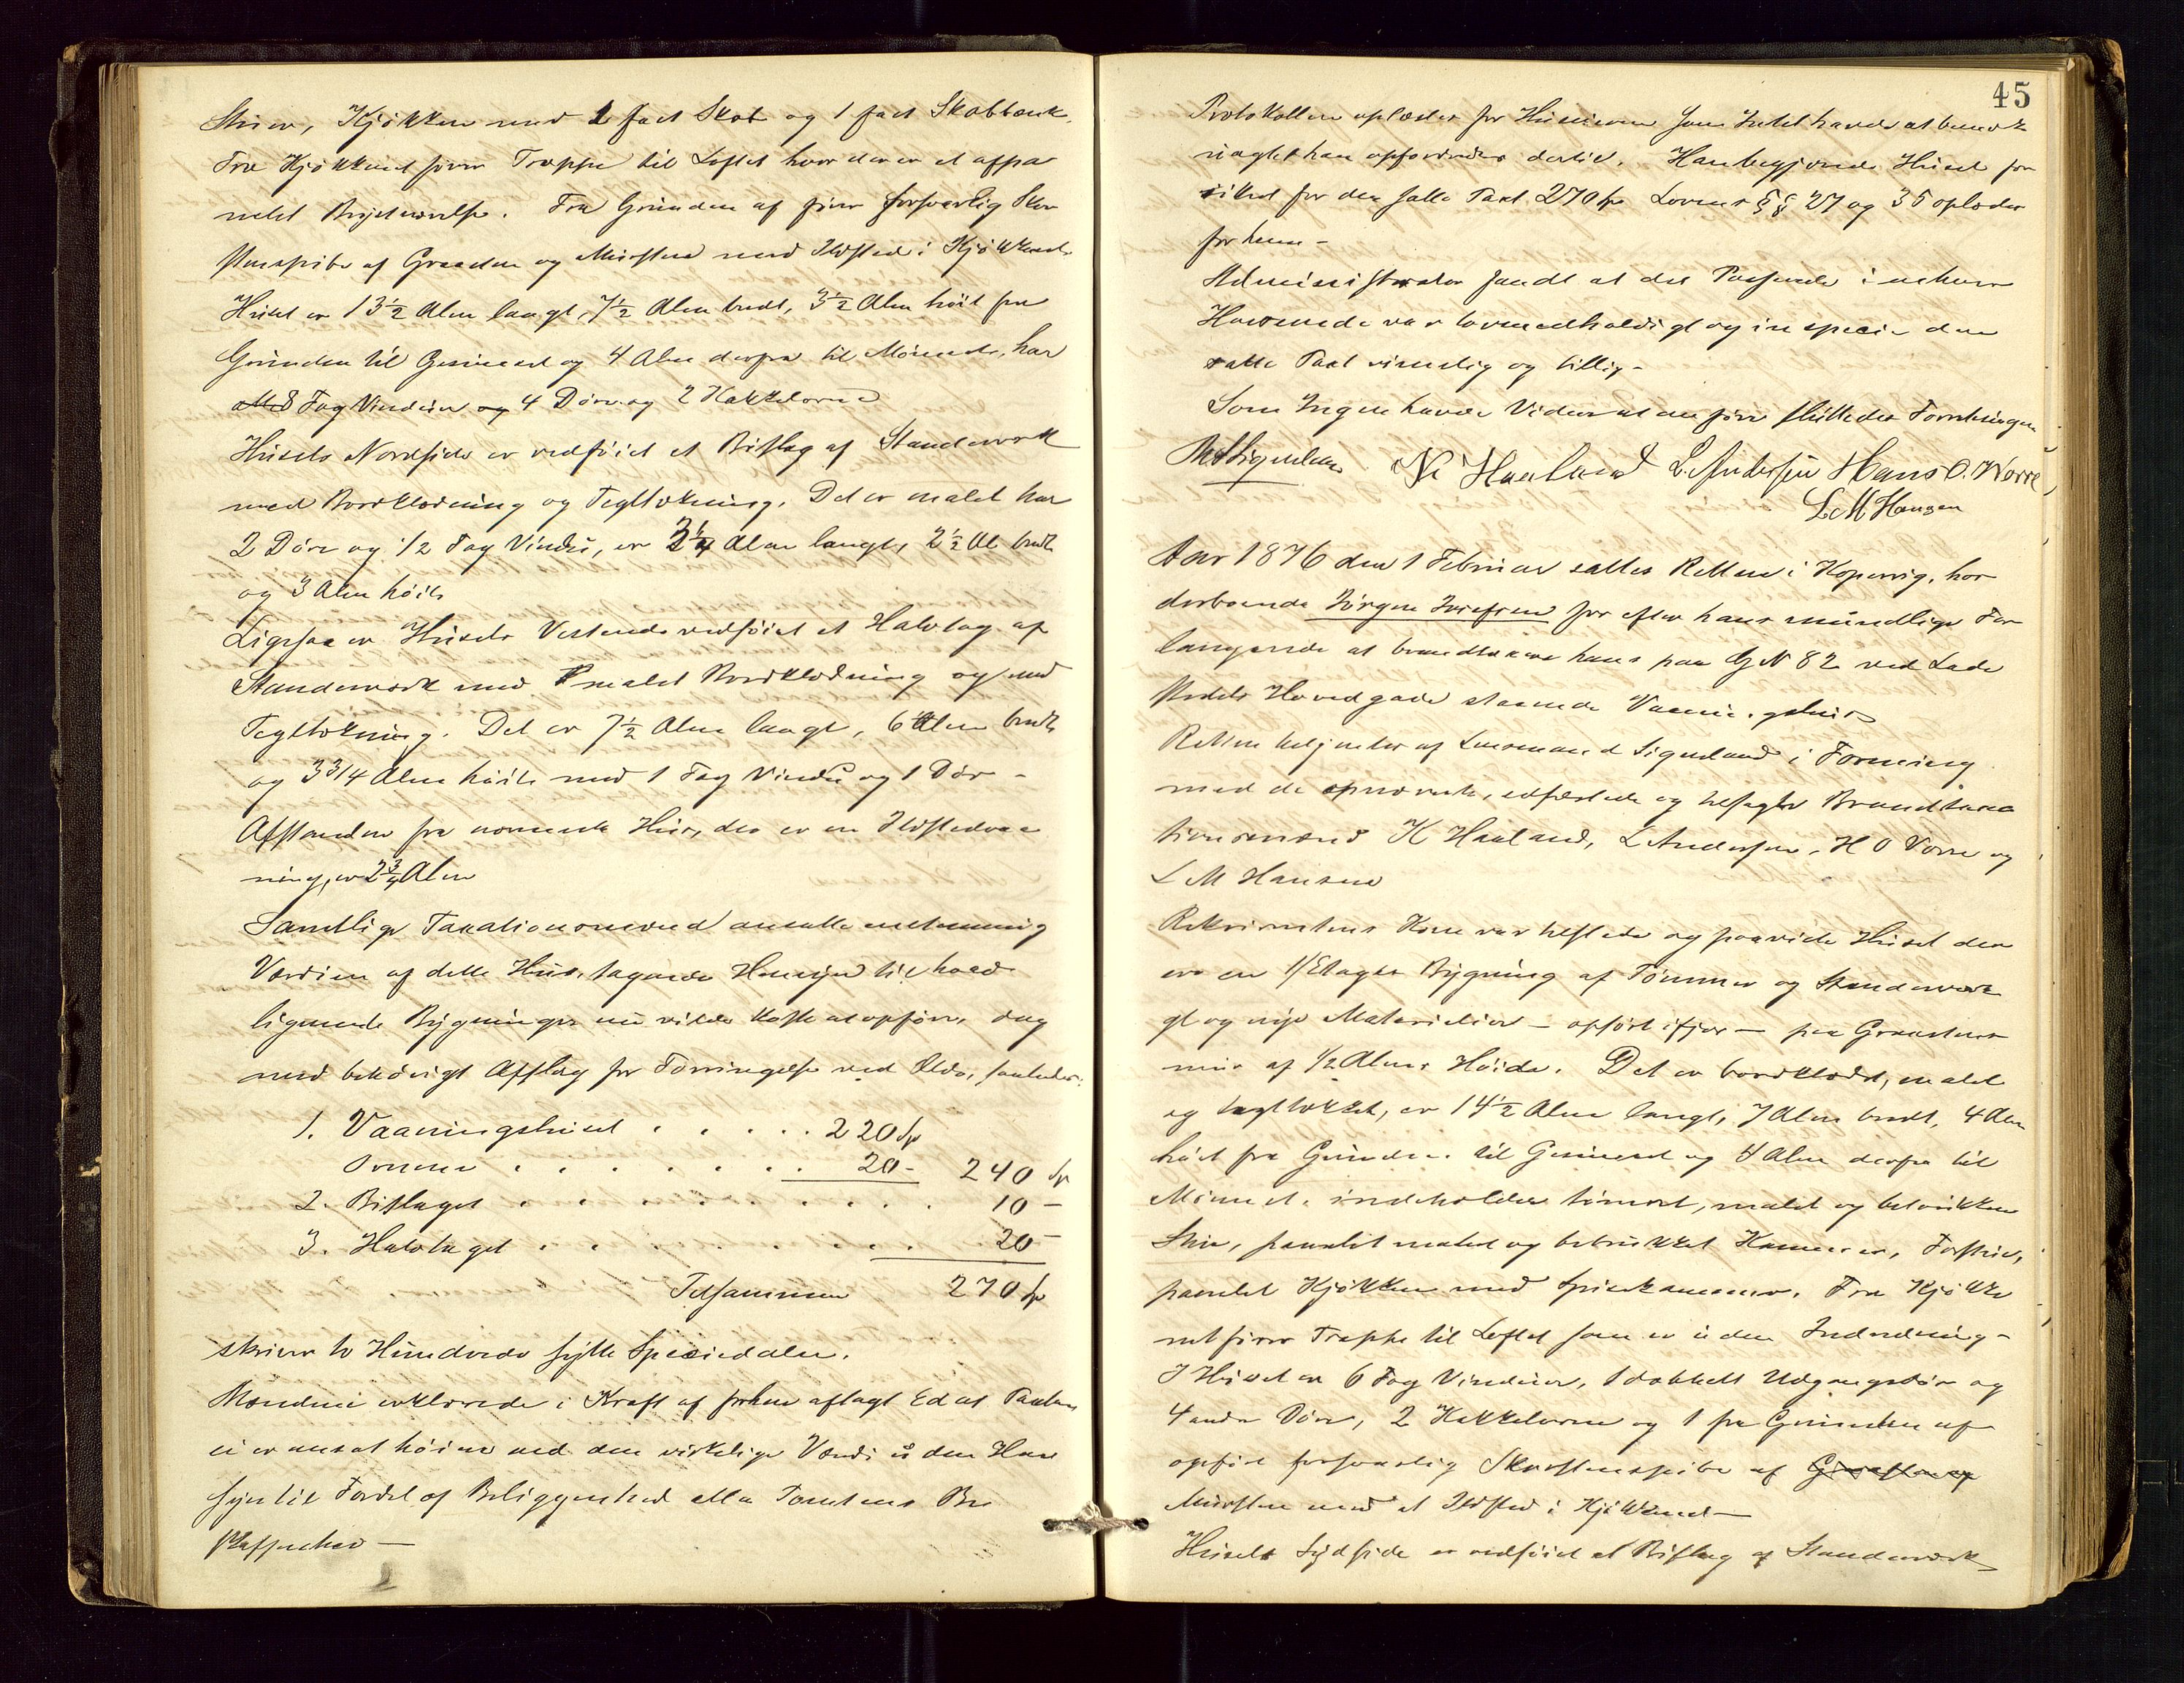 Stuer, Kjøkken med 1 fast Skab og 1 fast Skabbænk.
Fra Kjøkkenet fører Trappe til Loftet hvor der er et afpa
nelet Brystværelse. Fra Grunden af fører forsvarlig Skor
stenspibe af Graasten og Mursten med Ildsted i Kjøkkenet.
Huset er 13½ Alen langt, 7½ Alen bredt, 3½ Alen høit fra
Grunden til Gesimset og 4 Alen derfra til Mønnet, har
8 Fag Vinduer og 4 Døre og 2 Kakkelovne
Husets Nordside er vedføiet et Bislag af Standerværk
med Bordklædning og Tegltækning. Det er malet har
2 Døre og 1/2 Fag Vindu, er 3¼ Alen langt, 2½ Al bredt
og 3 Alen høit.
Ligesaa er Husets Vestende vedføiet et Halvtag af
Standerværk med malet Bordklædning og med
Tegltækning. Det er 7½ Alen langt, 6 Alen bredt
og 3 3/4 Alen høit med 1 Fag Vindu og 1 Dør -
Afstanden fra nærmeste Hus, der er en Ildstedvaa
ning, er 2¾ Alen
Samtlige Taxationsmænd ansatte enstemmig
Værdien af dette Hus, tagende Hensyn til hvad
lignende Bygninger nu vilde koste at opføre, dog
med behørigt Afslag for Forringelse ved Ælde, saaledes:
1. Vaaningshuset . . . . . 220 Sp
Ovnene . . . . . . . 20 - 240 Sp
2. Bislaget . . . . . . . . . 10 -
3. Halvtaget . . . . . . . . 20 -
Tilsammen 270 Sp
skriver to Hundrede sytti Speciedaler.
Mændene erklærede i Kraft af forhen aflagt Ed at Taxten
ei er ansat høiere end den virkelige Værdi uden Hen
syn til Fordel af Beliggenhed eller Tomtens Be
skaffenhed -
45
Protokollen oplæstes for Huseieren som Intet havde at bemærke
uagtet han opfordredes dertil. Han begjærede Huset for
sikret for den satte Taxt 270 Sp Lovens §§ 27 og 35 oplæstes
for ham -
Administrator fandt at det Passerede i enhver
Henseende var lovmedholdigt og in specie den
satte Taxt rimelig og billig -
Som Ingen havde Videre at anføre sluttedes Forretningen
K Haaland L. Andersen Hans O. Worre
L M Hansen
Aar 1876 den 1 Februar sattes Retten i Kopervig, hos
derboende Jørgen Josefsen for efter hans mundlige For
langende at brandtaxere hans paa G N 82 ved Lade
stedets Hovedgade staaende Vaaningshus
Retten betjentes af Lensmand Signeland i Forening
med de opnævnte, edfæstede og tilsagte Brandtaxa
tionsmænd K Haaland, L Andersen, H O Vorre og
L M Hansen
Rekvirentens Kone var tilstede og paaviste Huset der
er en 1 Etages Bygning af Tømmer og Standerværk
gl og nye Materialier - opført ifjor - paa Graastens
mur af 1/2 Alens Høide. Det er bordklædt, malet
og tegltækket, er 14½ Alen langt, 7 Alen bredt, 4 Alen
høit fra Grunden til Gesimset og 4 Alen derfra til
Mønnet. indeholder tømret, malet og betrukken
Stue, panelet malet og betrukket Kammer, Forstue,
panelet Kjøkken med Spisekammer. Fra Kjøkke
net fører Trappe til Loftet som er uden Indredning -
I Huset er 6 Fag Vinduer, 1 dobbelt Udgangsdør og
4 andre Døre, 2 Kakkelovne og 1 fra Grunden af
opført forsvarlig Skorstenspibe af Graasten og
Mursten med et Ildsted i Kjøkkenet -
Husets Sydside er vedføiet et Bislag af Standerværk